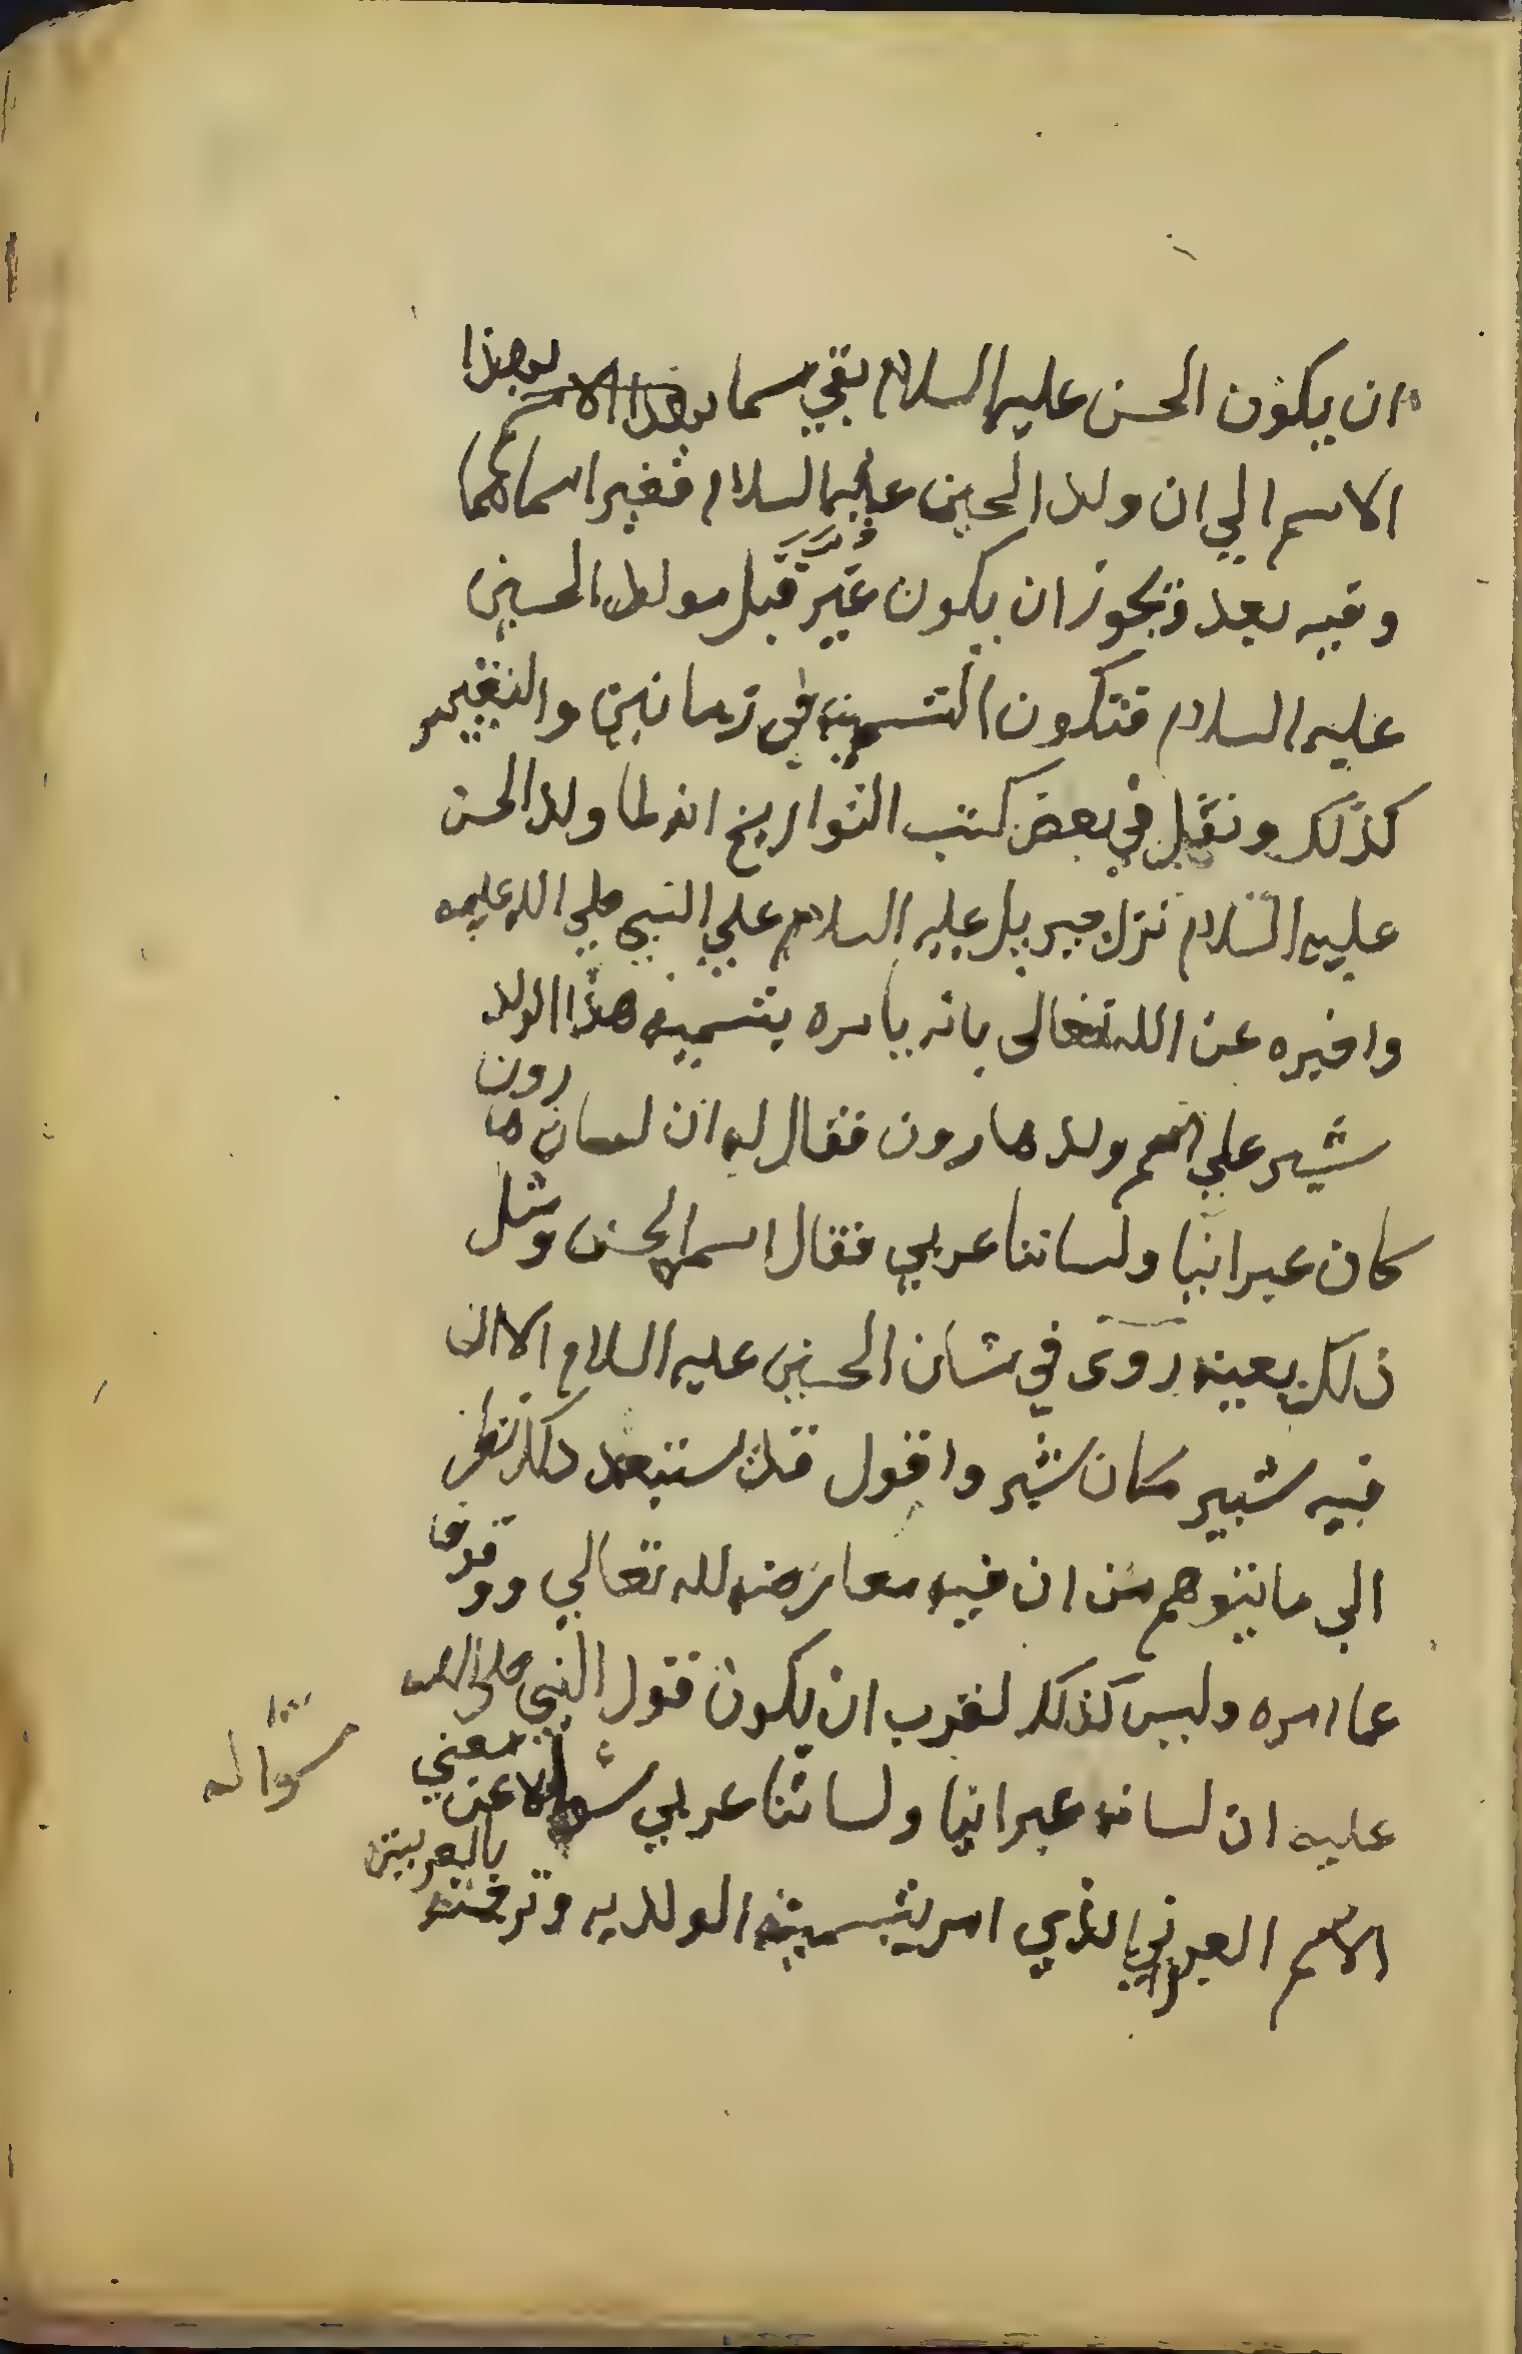 ان يكون الحسن عليه السلام بقي مسما بهذا
الاسم الي ان ولد الحسين عليهما السلام فغير اسماهما
وفيه بعد ويجوز ان يكون غير قبل مولد الحسين
عليه السلام فتكون التسمية في زمانين والتغيير
كذلك ونقل في بعض كتب التواريخ انه لما ولد الحسن
عليه السلام نزل جبريل عليه السلام علي النبي صلي الله عليه
واخبره عن الله تعالى بانه يامره بتسمية هذا الولد
شبر علي اسم ولد هارون فقال له ان لسان هارون
كان عبرانيا ولساننا عربي فقال اسمه الحسن ومثل
ذلك بعينه روى في شان الحسين عليه السلام الا ان
فيه شبير مكان شبر واقول قد يستبعد ذلك نظر
الي ما يتوهم من ان فيه معارضه لله تعالي ووقوفا
عما امره وليس كذلك لقرب ان يكون قول النبي صلى الله
عليه ان لسانه عبرانيا ولساننا عربي سؤالا عن معني
الاسم العبراني الذي امر بتسمية الولد به وترجمته بالعربية
سؤاله